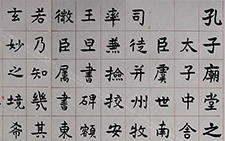 孔子廟堂之
太子中舍
臣虞世南
司徒并州牧
率兼撿挍安
王旦書碑額
徵臣屬書東
若乃知幾其
玄妙之境希